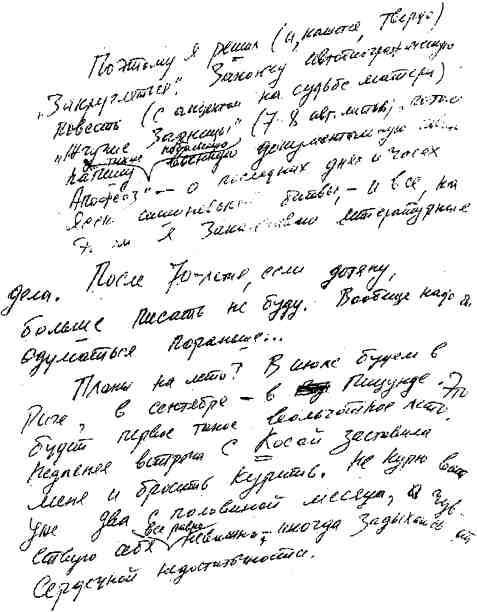 Поэтому я решил (и, кажется, твердо)
"Закруглиться". Закончу автобиографическую
повесть (с акцентом на судьбе матери)
"Жгучие Зарницы" (7-8 авт. листов), потом
напишу небольшую документальную
Апофеоз" – о последних днях и часах
битвы, – и все, на
этом я заканчиваю литературные
дела. После 70-летия, если дотяну,
больше писать не буду. Вообще надо
одуматься пораньше...
Планы на лето? В июле будем в
Риге, в сентябре – в Пицунде. Это
будет первое такое вольготное лето.
Недавняя встреча с Косой заставила
меня и бросить курить. Не курю вот
уже два с половиной месяца, а чув-
ствую себя все равно неважно: иногда задыхаюсь от
сердечной недостаточности.